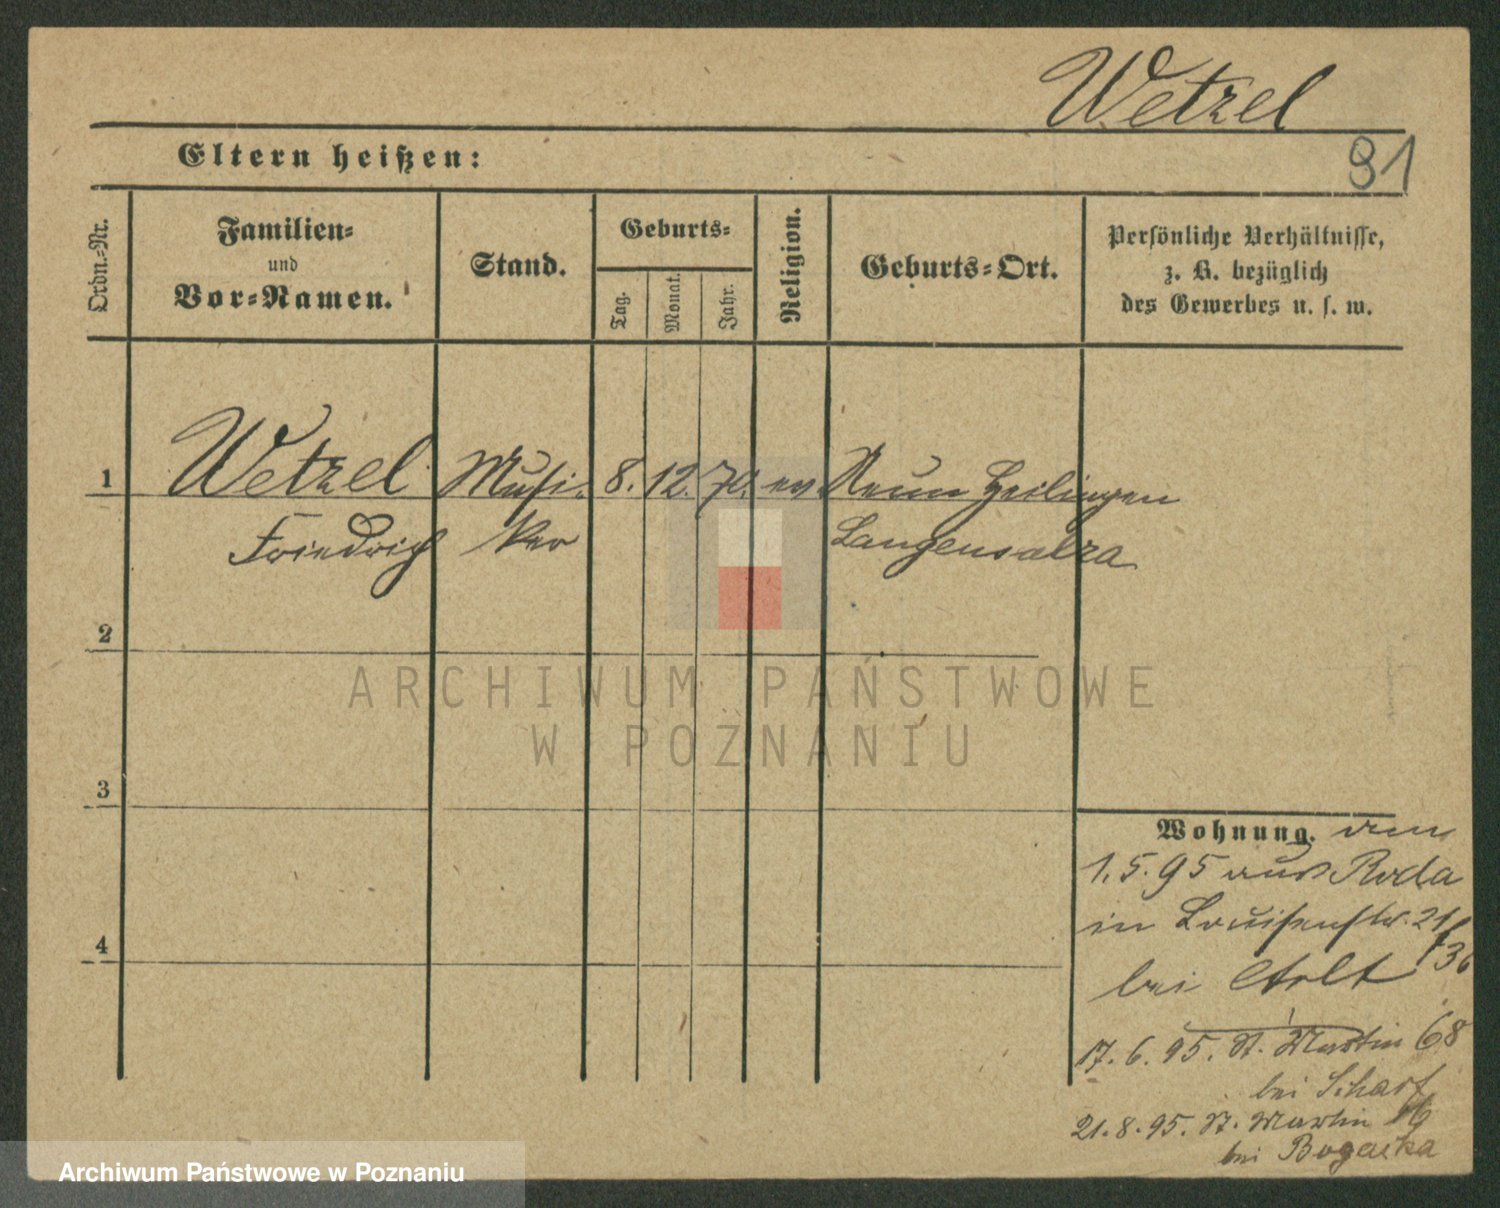 Wetzel
91
Eltern heißen:
Ordn.-Nr.
Familien-
und
Vor-Namen.
Stand.
Geburts-
Tag.
Monat.
Jahr.
Religion.
Geburts-Ort.
Persönliche Verhältnisse,
z. B. bezüglich
des Gewerbes u. s. w.
1
Wetzel Musi- 8. 12. 70. ev. Neun Heilingen
Friedrich ker Langensalza
2
ARCHIWUM PAŃSTWOWE
W POZNANIU
3
Wohnung. am
1.5.95 aus Roda
in Louisenstr. 21
bei
17. 6. 95. St. Martin 68
bei Scharf
21.8.95. St. Martin
bei Bogacka
4
Archiwum Państwowe w Poznaniu